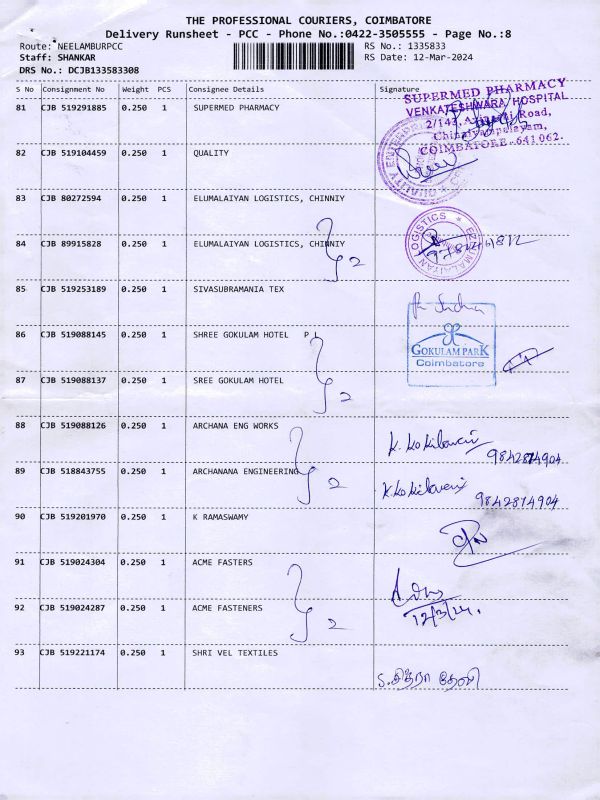 THE PROFESSIONAL COURIERS, COIMBATORE
Delivery Runsheet - PCC - Phone No.:0422-3505555 - Page No.:8
Route: NEELAMBURPCC
RS No.: 1335833
Staff: SHANKAR
RS Date: 12-Mar-2024
DRS No.: DCJB133583308
S No Consignment No Weight PCS Consignee Details Signature
81 CJB 519291885 0.250 1 SUPERMED PHARMACY
SUPERMED PHARMACY
VENKATESHWARA HOSPITAL
Road,
COIMBATORE - 641 062.
82 CJB 519104459 0.250 1 QUALITY
83 CJB 80272594 0.250 1 ELUMALAIYAN LOGISTICS, CHINNIY
84 CJB 89915828 0.250 1 ELUMALAIYAN LOGISTICS, CHINNIY
2
LOGISTICS
85 CJB 519253189 0.250 1 SIVASUBRAMANIA TEX
86 CJB 519088145 0.250 1 SHREE GOKULAM HOTEL P L
GOKULAM PARK
Coimbatore
87 CJB 519088137 0.250 1 SREE GOKULAM HOTEL
2
88 CJB 519088126 0.250 1 ARCHANA ENG WORKS
89 CJB 518843755 0.250 1 ARCHANANA ENGINEERING
2
9842874904
90 CJB 519201970 0.250 1 K RAMASWAMY
91 CJB 519024304 0.250 1 ACME FASTERS
92 CJB 519024287 0.250 1 ACME FASTENERS
2
12/3/24.
93 CJB 519221174 0.250 1 SHRI VEL TEXTILES
S. சித்ரா தேவி